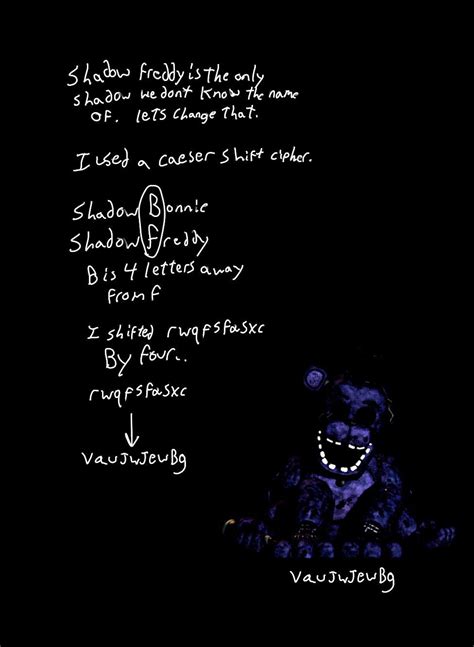 Shadow Freddy is the only
shadow we dont know the name
OF. lets change that.
I used a caeser shift cipher.
Shadow Bonnie
Shadow Freddy
B is 4 letters away
from f
I shifted rwqfsfasxc
By four..
rwqfsfasxc
VauJwJewBg
VauJwJewBg